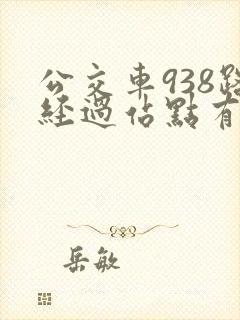 公交車938路
經過佔點有
岳敏